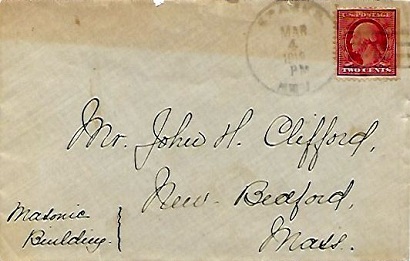 MAR
4
PM
U.S. POSTAGE
TWO CENTS
Mr. John H. Clifford,
New Bedford,
Mass.
Masonic
Building.